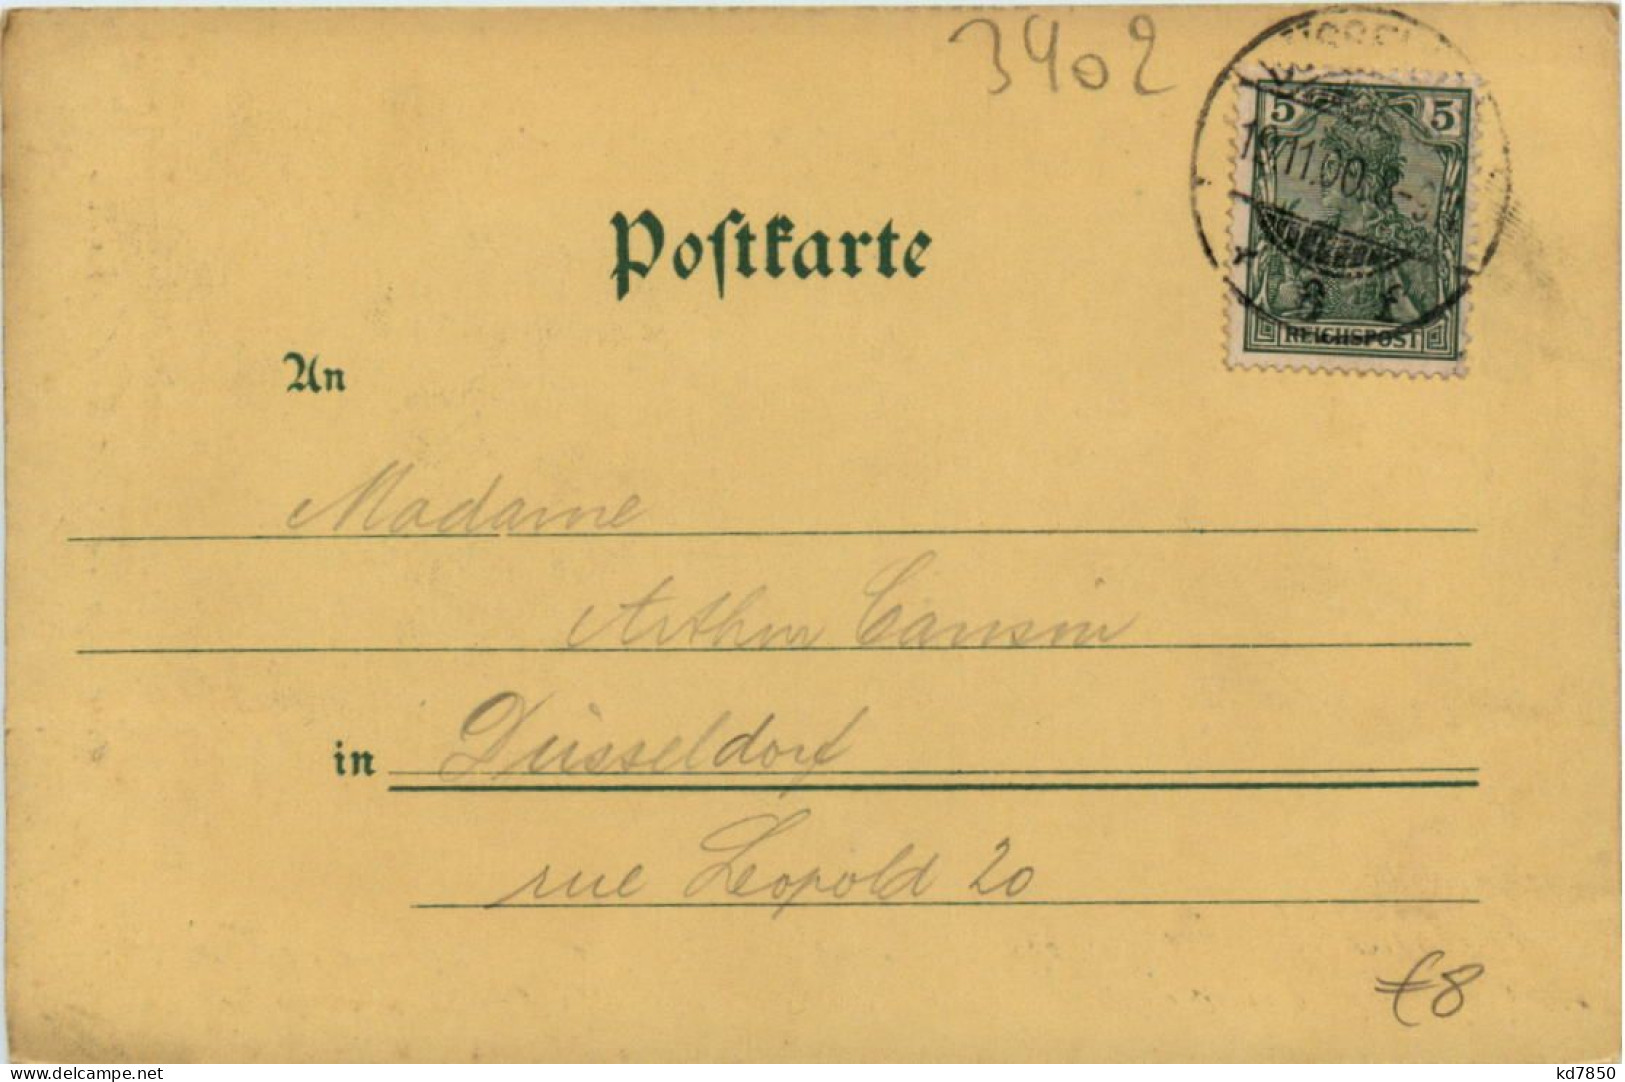 3402
5 5
19.11.00. 8-9
REICHSPOST
Poſtkarte
An
Madame
Arthur
in Düsseldorf
rue Leopold 20
€8
delcampe.net
kd7850